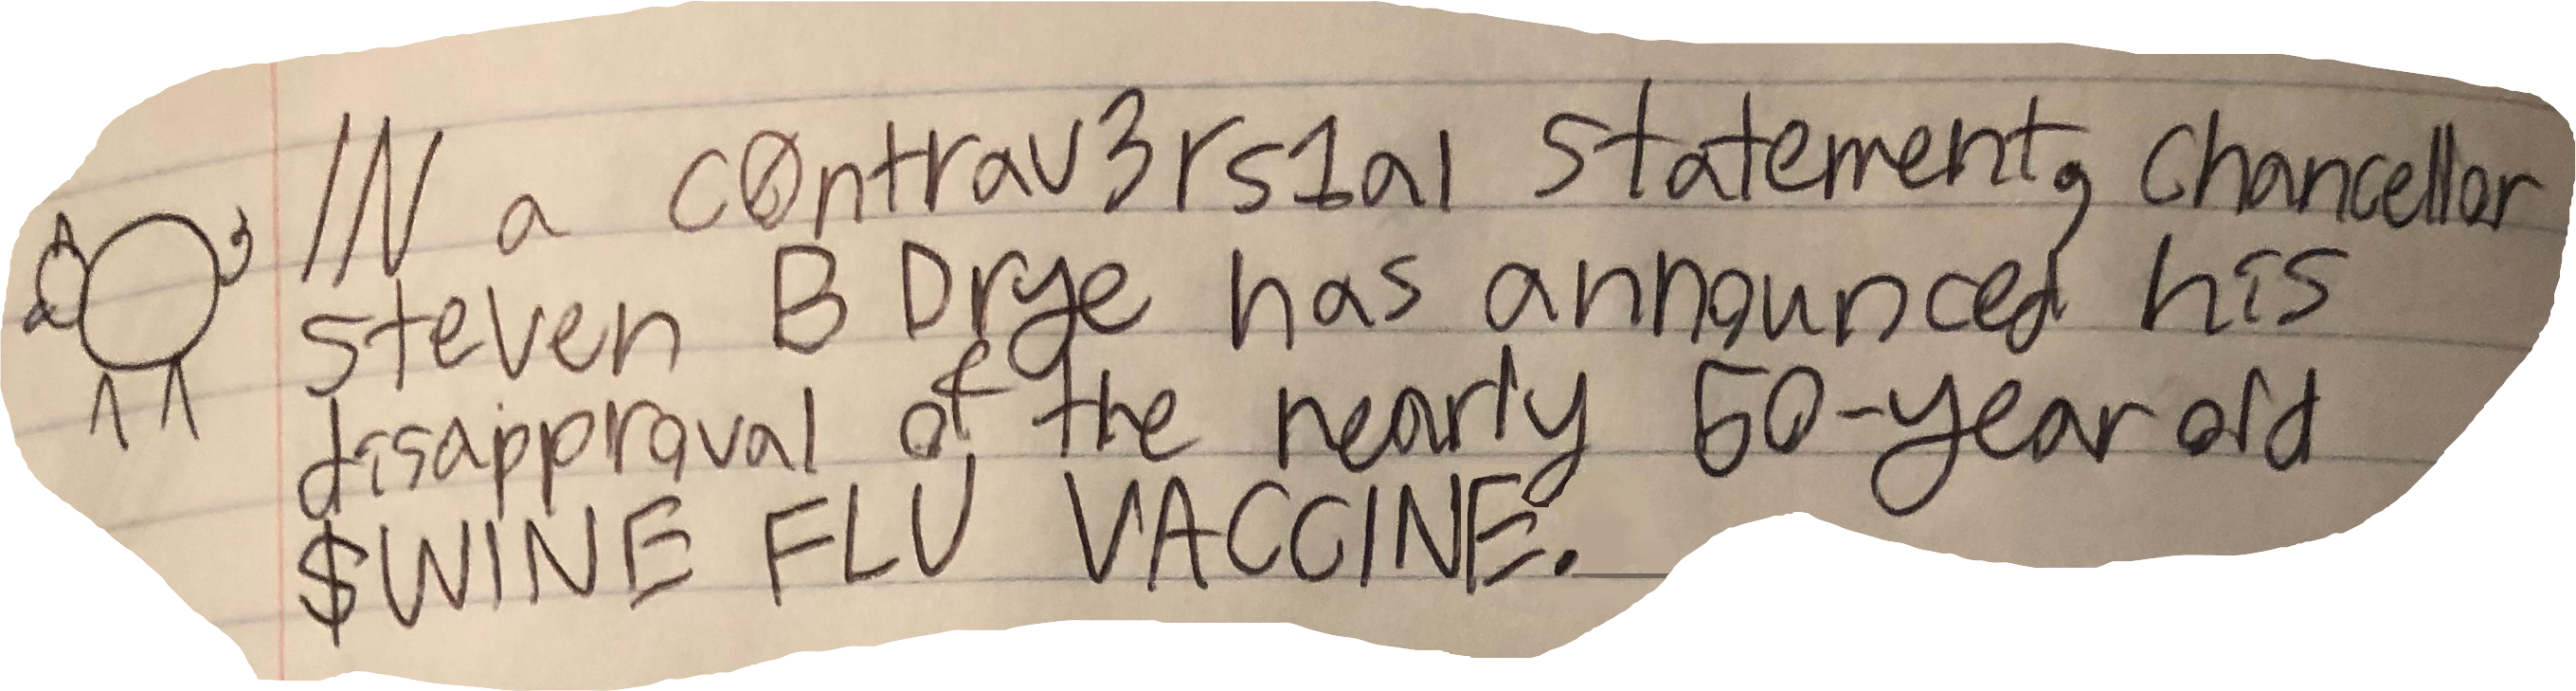 IN a c0ntrav3rs1al statement, Chancellor
steven B Drye has announced his
disapproval of the nearly 50-year old
$WINE FLU VACCINE.